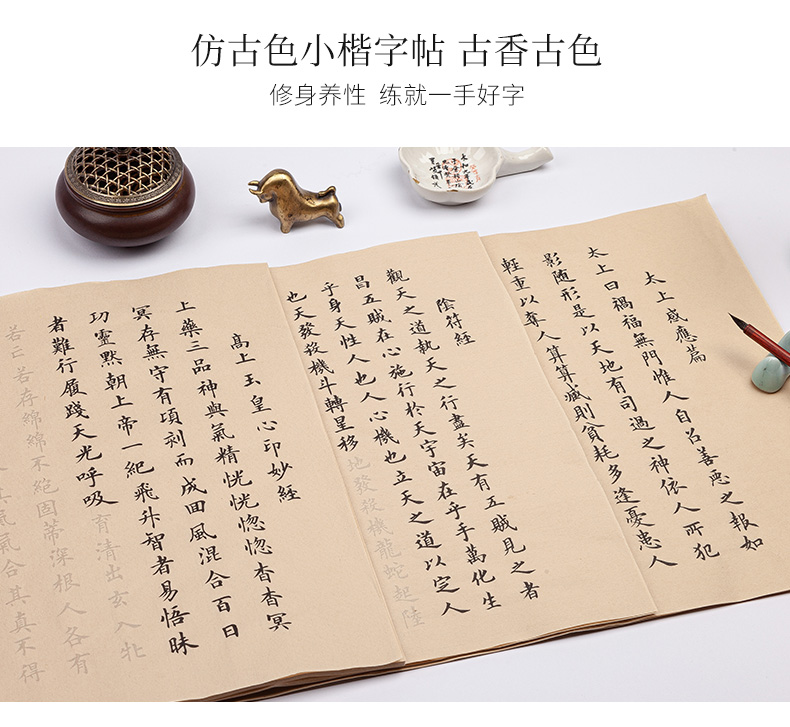 仿古色小楷字帖 古香古色
修身养性 练就一手好字
太上感應篇
太上曰禍福無門惟人自召善恶之報如
影随形是以天地有司過之神依人所犯
輕重以奪人算算減則貧耗多逢憂患人
陰符經
觀天之道執天之行盡矣天有五賊見之者
昌五賊在心施行於天宇宙在乎手萬化生
乎身天性人也人心機也立天之道以定人
也天發殺機斗轉星移地發殺機龍蛇起陸
高上玉皇心印妙經
上藥三品神與氣精恍恍惚惚杳杳冥
冥存無守有項刹而成回風混合百日
功靈默朝上帝一紀飛升智者易悟昧
者難行履踐天光呼吸育清出玄入牝
若亡若存綿綿不絕固蒂深根人各有
氣合其真不得